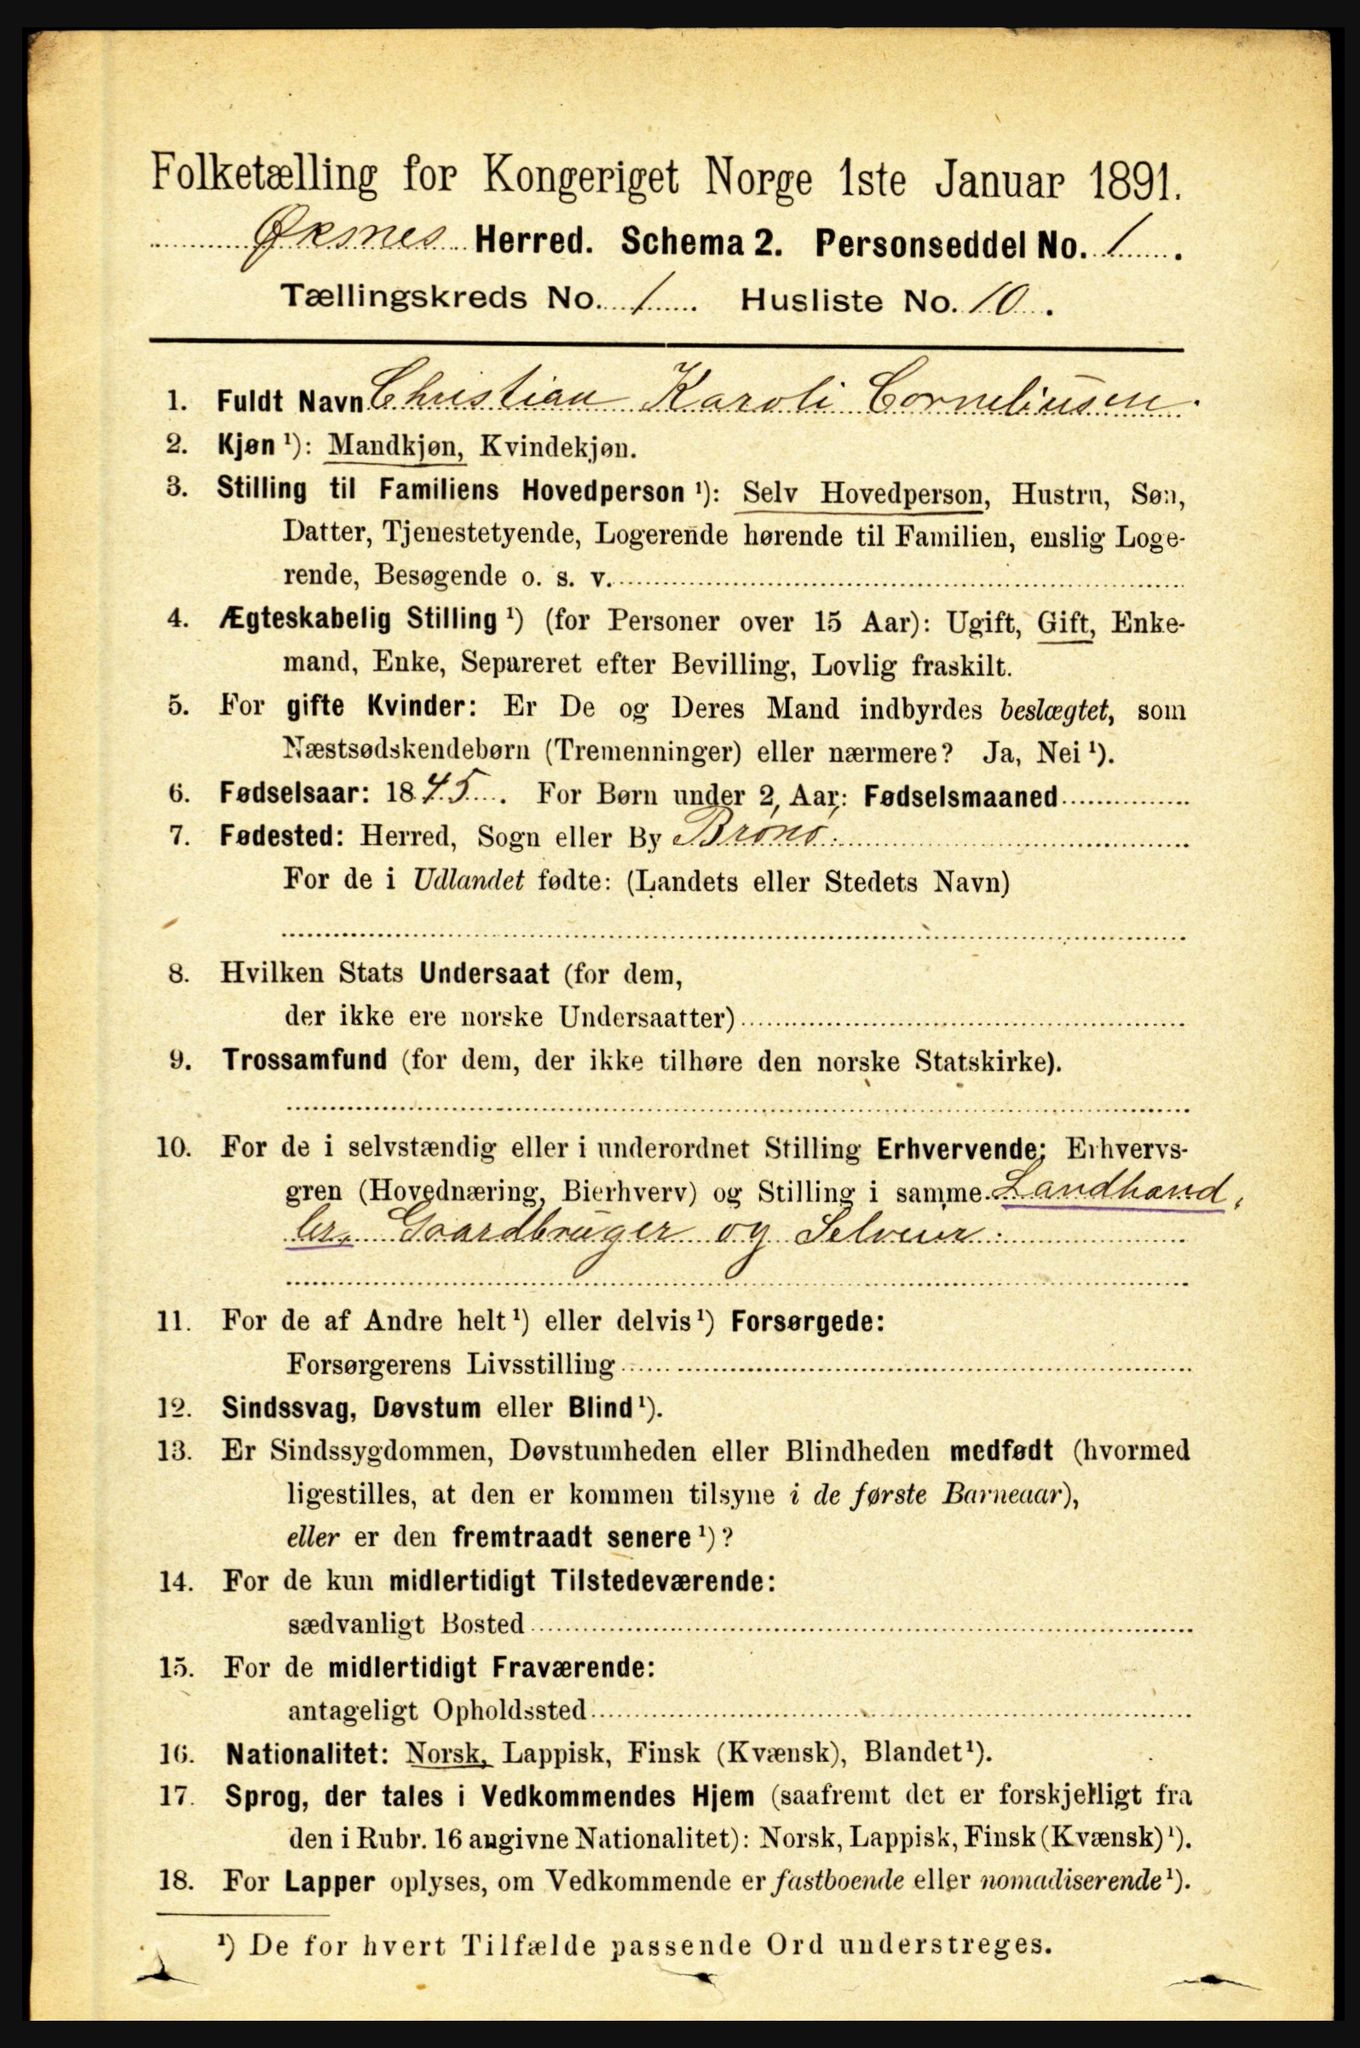 Folketælling for Kongeriget Norge 1ste Januar 1891.
Øksnes Herred. Schema 2. Personseddel No. 1.
Tællingskreds No. 1. Husliste No. 10.
1. Fuldt Navn Christian Karoli Corneliusen.
2. Kjøn ¹): Mandkjøn, Kvindekjøn.
3. Stilling til Familiens Hovedperson ¹): Selv Hovedperson, Hustru, Søn,
Datter, Tjenestetyende, Logerende hørende til Familien, enslig Loge-
rende, Besøgende o. s. v.
4. Ægteskabelig Stilling ¹) (for Personer over 15 Aar): Ugift, Gift, Enke-
mand, Enke, Separeret efter Bevilling, Lovlig fraskilt.
5. For gifte Kvinder: Er De og Deres Mand indbyrdes beslægtet, som
Næstsødskendebørn (Tremenninger) eller nærmere? Ja, Nei ¹).
6. Fødselsaar: 1845. For Børn under 2 Aar: Fødselsmaaned
7. Fødested: Herred, Sogn eller By Brønø.
For de i Udlandet fødte: (Landets eller Stedets Navn)
8. Hvilken Stats Undersaat (for dem,
der ikke ere norske Undersaatter)
9. Trossamfund (for dem, der ikke tilhøre den norske Statskirke).
10. For de i selvstændig eller i underordnet Stilling Erhvervende: Erhvervs-
gren (Hovednæring, Bierhverv) og Stilling i samme. Landhand,
ler, Gaardbruger og Selveier.
11. For de af Andre helt ¹) eller delvis ¹) Forsørgede:
Forsørgerens Livsstilling
12. Sindssvag, Døvstum eller Blind ¹).
13. Er Sindssygdommen, Døvstumheden eller Blindheden medfødt (hvormed
ligestilles, at den er kommen tilsyne i de første Barneaar),
eller er den fremtraadt senere ¹)?
14. For de kun midlertidigt Tilstedeværende:
sædvanligt Bosted
15. For de midlertidigt Fraværende:
antageligt Opholdssted
16. Nationalitet: Norsk, Lappisk, Finsk (Kvænsk), Blandet ¹).
17. Sprog, der tales i Vedkommendes Hjem (saafremt det er forskjelligt fra
den i Rubr. 16 angivne Nationalitet): Norsk, Lappisk, Finsk (Kvænsk) ¹).
18. For Lapper oplyses, om Vedkommende er fastboende eller nomadiserende ¹).
¹) De for hvert Tilfælde passende Ord understreges.